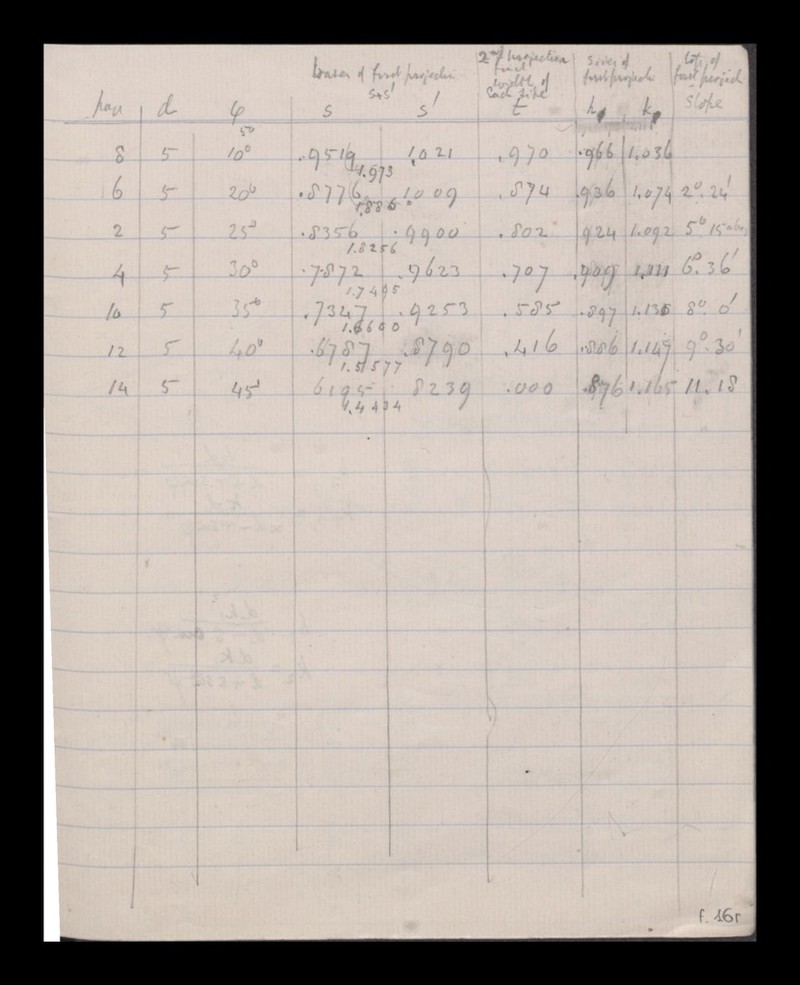 bases of first projection
2nd projection
width of
each side
sides of
first project
tops of
first project
slope
page d φ s s+s' s' t h k
5°
8 5 10° .9519 1.021 .970 .966 1.036
1.973
6 5 20° .8776 1.009 .874 .936 1.074 2°.24'
1.886
2 5 25° .8356 .9900 .802 .924 1.092 5° 15
1.8256
4 5 30° .7872 .9623 .707 .909 1.111 6°.36'
1.7495
10 5 35° .7347 .9253 .585 .897 1.130 8°.0'
1.6600
12 5 40° .6787 .8790 .416 .886 1.149 9°.30'
1.5577
14 5 45° 6195 8239 .000 .876 1.165 11.18
1.4434
f. 16r